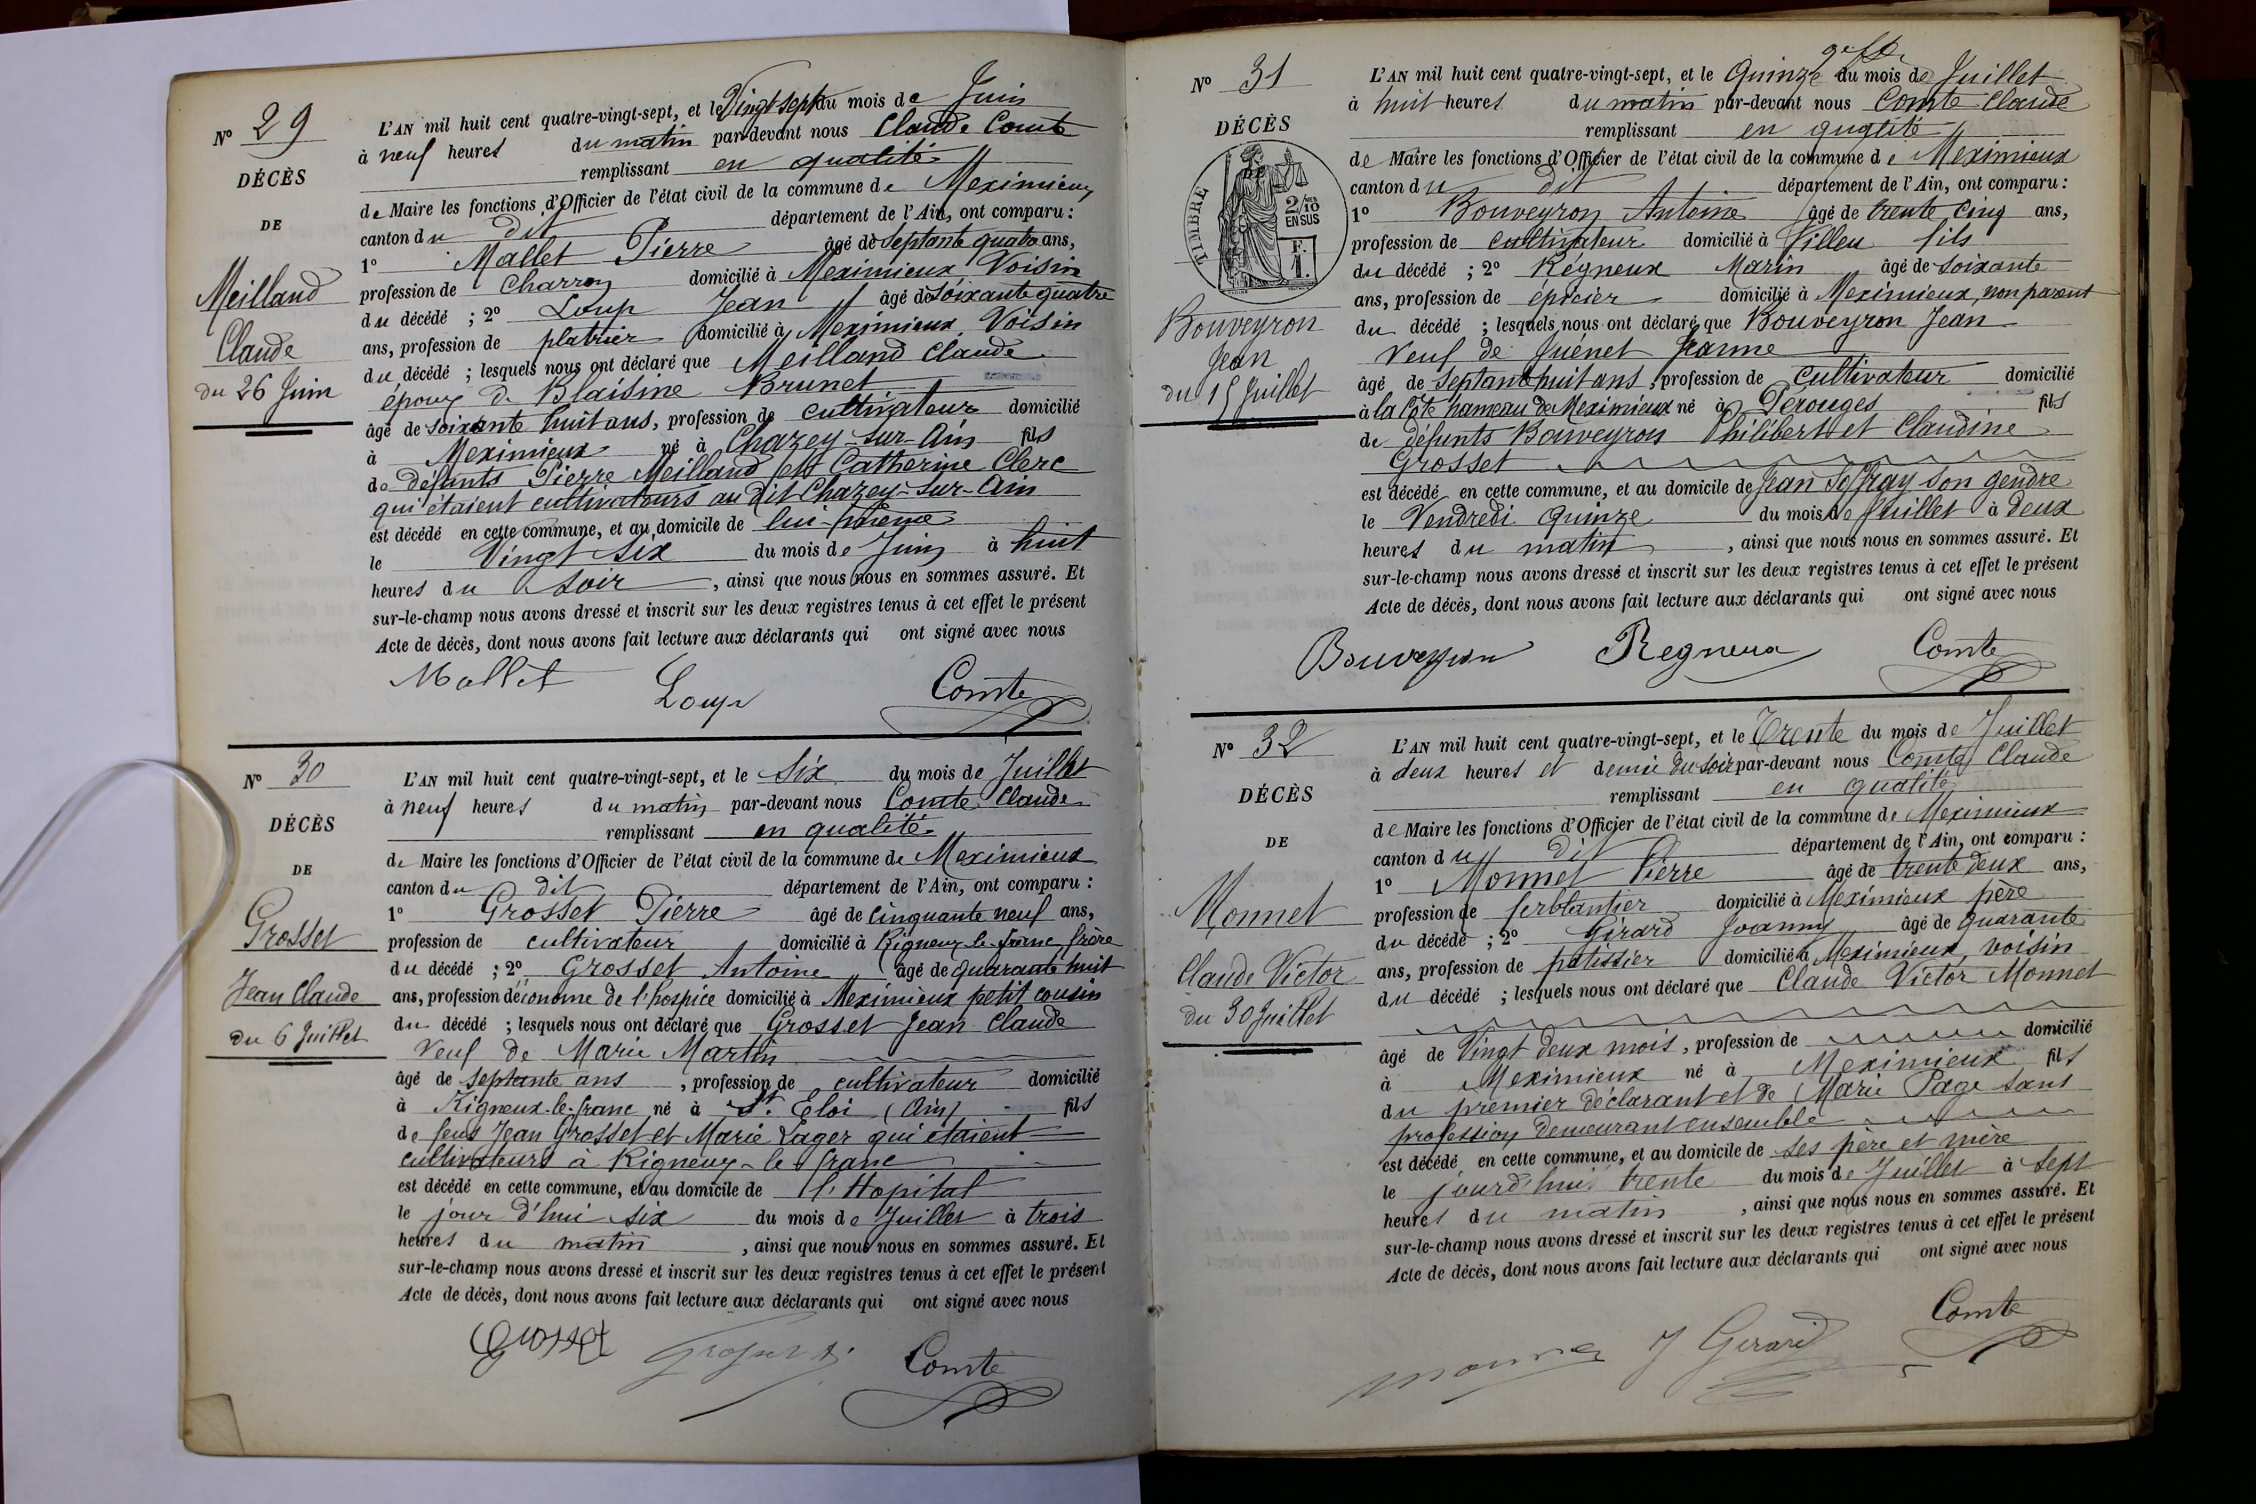 N° 29
DÉCÈS
DE
Meilland
Claude
du 26 Juin
L'AN mil huit cent quatre-vingt-sept, et le Vingt sept du mois de Juin
à neuf heures du matin par-devant nous Claude Comte
remplissant en qualité
de Maire les fonctions d'Officier de l'état civil de la commune de Meximieux
canton du dit département de l'Ain, ont comparu :
1° Mallet Pierre âgé de septante quatre ans,
profession de Charron domicilié à Meximieux Voisin
du décédé ; 2° Loup Jean âgé de soixante quatre
ans, profession de platrier domicilié à Meximieux, Voisin
du décédé ; lesquels nous ont déclaré que Meilland Claude
époux de Blaisine Brunet
âgé de soixante huit ans, profession de cultivateur domicilié
à Meximieux né à Chazey-sur-Ain fils
de défunts Pierre Meilland et Catherine Clerc
qui étaient cultivateurs au dit Chazey-sur-Ain
est décédé en cette commune, et au domicile de lui-même
le Vingt six du mois de Juin à huit
heures du soir, ainsi que nous nous en sommes assuré. Et
sur-le-champ nous avons dressé et inscrit sur les deux registres tenus à cet effet le présent
Acte de décès, dont nous avons fait lecture aux déclarants qui ont signé avec nous
Mallet Loup Comte
N° 30
DÉCÈS
DE
Grosset
Jean Claude
du 6 Juillet
L'AN mil huit cent quatre-vingt-sept, et le Six du mois de Juillet
à neuf heures du matin par-devant nous Comte Claude
remplissant en qualité
de Maire les fonctions d'Officier de l'état civil de la commune de Meximieux
canton du dit département de l'Ain, ont comparu :
1° Grosset Pierre âgé de cinquante neuf ans,
profession de cultivateur domicilié à Rigneux-le-franc, frère
du décédé ; 2° Grosset Antoine âgé de quarante huit
ans, profession d'économe de l'hospice domicilié à Meximieux petit cousin
du décédé ; lesquels nous ont déclaré que Grosset Jean Claude
Veuf de Marie Martin
âgé de septante ans, profession de cultivateur domicilié
à Rigneux-le-franc né à St. Eloi (Ain) fils
de feus Jean Grosset et Marie Lager qui étaient
cultivateurs à Rigneux-le-franc
est décédé en cette commune, et au domicile de l'Hopital
le jour d'hui six du mois de Juillet à trois
heures du matin, ainsi que nous nous en sommes assuré. Et
sur-le-champ nous avons dressé et inscrit sur les deux registres tenus à cet effet le présent
Acte de décès, dont nous avons fait lecture aux déclarants qui ont signé avec nous
Grosset Comte
N° 31
DÉCÈS
DE
TIMBRE
2/10 EN SUS
Bouveyron
Jean
du 15 Juillet
L'AN mil huit cent quatre-vingt-sept, et le Quinze du mois de Juillet
à huit heures du matin par-devant nous Comte Claude
remplissant en qualité
de Maire les fonctions d'Officier de l'état civil de la commune de Meximieux
canton du dit département de l'Ain, ont comparu :
1° Bouveyron Antoine âgé de trente cinq ans,
profession de cultivateur domicilié à Villeu fils
du décédé ; 2° Régneux Marin âgé de soixante
ans, profession de épicier domicilié à Meximieux, non parent
du décédé ; lesquels nous ont déclaré que Bouveyron Jean
Veuf de Juénet Jeanne
âgé de septante huit ans, profession de cultivateur domicilié
à la Côte hameau de Meximieux né à Pérouges fils
de défunts Bouveyron Philibert et Claudine
Grosset
est décédé en cette commune, et au domicile de Jean Joffray son gendre
le Vendredi quinze du mois de Juillet à deux
heures du matin, ainsi que nous nous en sommes assuré. Et
sur-le-champ nous avons dressé et inscrit sur les deux registres tenus à cet effet le présent
Acte de décès, dont nous avons fait lecture aux déclarants qui ont signé avec nous
Bouveyron Regneux Comte
N° 32
DÉCÈS
DE
Monnet
Claude Victor
du 30 Juillet
L'AN mil huit cent quatre-vingt-sept, et le Trente du mois de Juillet
à deux heures et demie du soir par-devant nous Comte Claude
remplissant en qualité
de Maire les fonctions d'Officier de l'état civil de la commune de Meximieux
canton du dit département de l'Ain, ont comparu :
1° Monnet Pierre âgé de trente deux ans,
profession de ferblantier domicilié à Meximieux père
du décédé ; 2° Girard Joanny âgé de quarante
ans, profession de patissier domicilié à Meximieux, voisin
du décédé ; lesquels nous ont déclaré que Claude Victor Monnet
âgé de Vingt deux mois, profession de domicilié
à Meximieux né à Meximieux fils
du premier déclarant et de Marie Page sans
profession demeurant ensemble
est décédé en cette commune, et au domicile de ses père et mère
le jourd'hui trente du mois de Juillet à sept
heures du matin, ainsi que nous nous en sommes assuré. Et
sur-le-champ nous avons dressé et inscrit sur les deux registres tenus à cet effet le présent
Acte de décès, dont nous avons fait lecture aux déclarants qui ont signé avec nous
Monnet J Gerard Comte